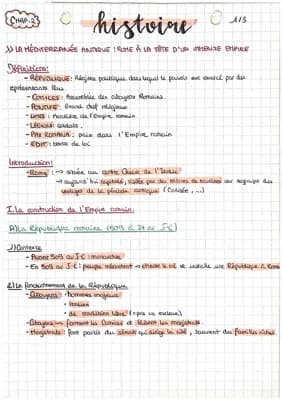 CHAP. 2
histoire
1/3
1) LA MÉDITERRANÉE ANTIQUE : ROME À LA TÊTE D'UN IMMENSE EMPIRE
Définitions:
- RÉPUBLIQUE: Régime politique dans lequel le pouvoir est exercé par des
représentants élus.
- COMICES: Assemblée des citoyens Romains.
- PONTIFE: Grand chef religieux
- LIMES: Frontière de l'Empire romain
- LÉGION: soldats.
- PAX ROMANA: paix dans l'Empire romain
- EDIT: texte de loi
Introduction:
- Rome: → située au centre Ouest de l'Italie
→ aujourd'hui capitale, visitée par des milliers de touristes qui
vestiges de la période antique (Colisée, ...)
I. La construction de l'Empire romain.
A) La République romaine (509 à 27 av J-C)
1) Contexte
- Avant 509 av J-C: monarchie
- En 509 av J-C: peuple mécontent → chasse le roi et installe une République à Rome
2) Le fonctionnement de la République
- Citoyens: - hommes majeurs
- Italien
- de condition libre (n'pas un esclave)
- Citoyens → forment les Comices et élisent les magistrats.
- Magistrats: font partis du sénat qui dirige la cité, souvent des familles riches.